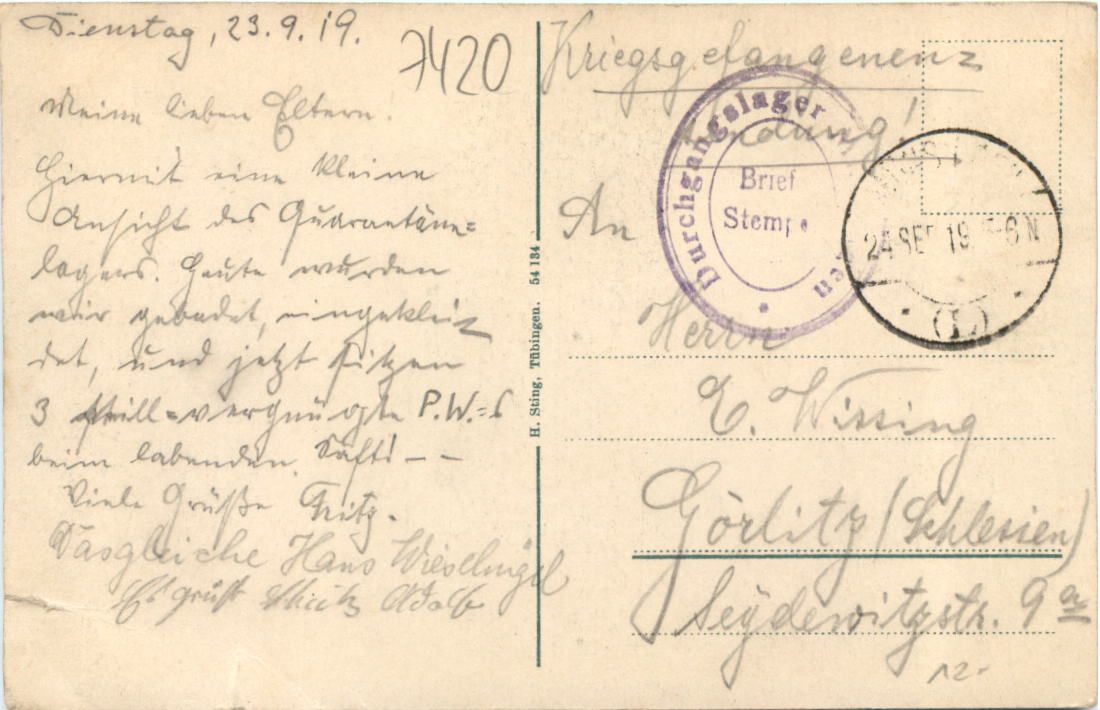 Dienstag, 23.9.19.
7420
Meine lieben Eltern.
Hiermit eine kleine
Ansicht des Quarantäne=
lagers. Heute wurden
wir gebadet, eingeklei=
det, und jetzt sitzen
3 still=vergnügte P.W.=s
beim labenden Saft! – –
Viele Grüße Fritz.
Dasgleiche Hans
Es grüßt Adolf
H. Sting, Tübingen. 54 134
Kriegsgefangenen=
sendung!
Durchgangslager
Brief
Stempel
24 SEP 19 5-6 N
(L)
An
Herrn
E. Wissing
Görlitz (Schlesien)
Seydewitzstr. 9
12.